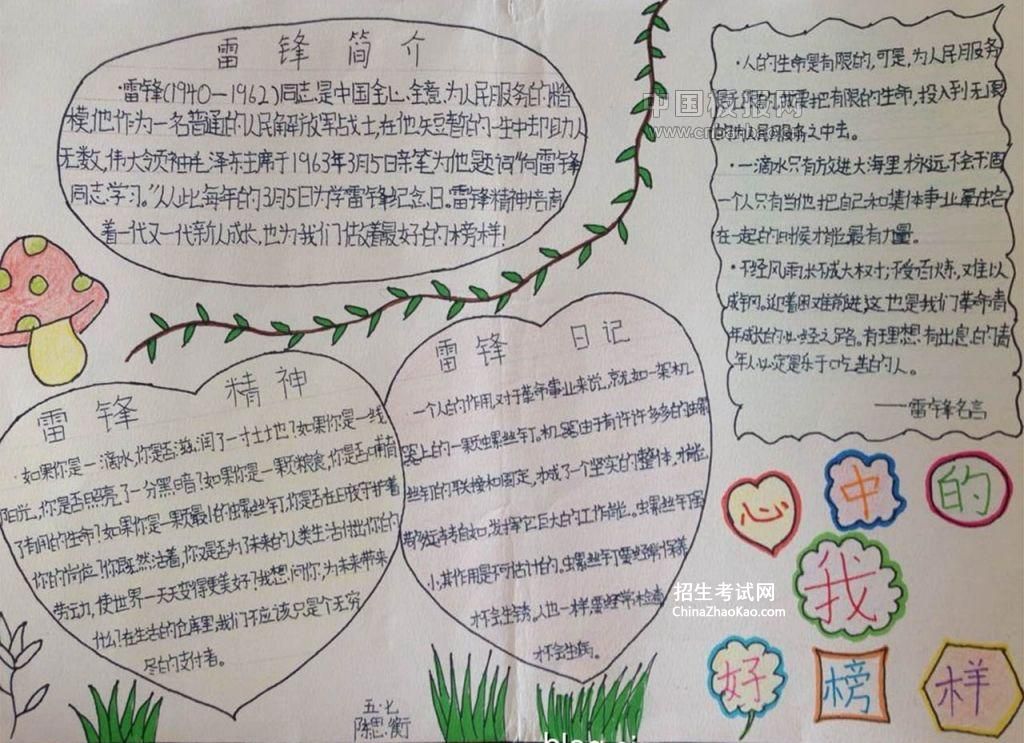 雷锋简介
·雷锋(1940—1962)同志是中国全心全意为人民服务的楷
模,他作为一名普通的人民解放军战士,在他短暂的一生中却助人
无数,伟大领袖毛泽东主席于1963年3月5日亲笔为他题词“向雷锋
同志学习。”从此每年的3月5日为学雷锋纪念日。雷锋精神培育
着一代又一代新人成长,也为我们做着最好的榜样!
·人的生命是有限的,可是,为人民服务
是无限的,我要把有限的生命,投入到无限
的为人民服务之中去。
·一滴水只有放进大海里才永远不会干涸
一个人只有当他把自己和集体事业融合
在一起的时候才能最有力量。
·不经风雨,长不成大树;不受百炼,难以
成钢。迎着困难前进,这也是我们革命青
年成长的必经之路。有理想有出息的青
年人必定是乐于吃苦的人。
——雷锋名言
中国板报网
雷锋精神
·如果你是一滴水,你是否滋润了一寸土地?如果你是一线
阳光,你是否照亮了一分黑暗?如果你是一颗粮食,你是否哺育
了有用的生命?如果你是一颗最小的螺丝钉,你是否在日夜守护着
你的岗位?你既然活着,你是否为了未来的人类生活付出你的
劳动,使世界一天天变得更美好?我想问你,为未来带来
什么?在生活的仓库里,我们不应该只是个无穷
尽的支付者。
雷锋日记
一个人的作用,对于革命事业来说,就如一架机
器上的一颗螺丝钉。机器由于有许许多多的螺
丝钉的联接和固定,才成了一个坚实的整体,才能
够运转自如,发挥它巨大的工作能。螺丝钉虽
小,其作用是不可估计的。螺丝钉要经常保养
才不会生锈。人也一样,要经常检查
才不会生病。
心中的
我
好榜样
招生考试网
ChinaZhaoKao.com
五·七
陈思衡